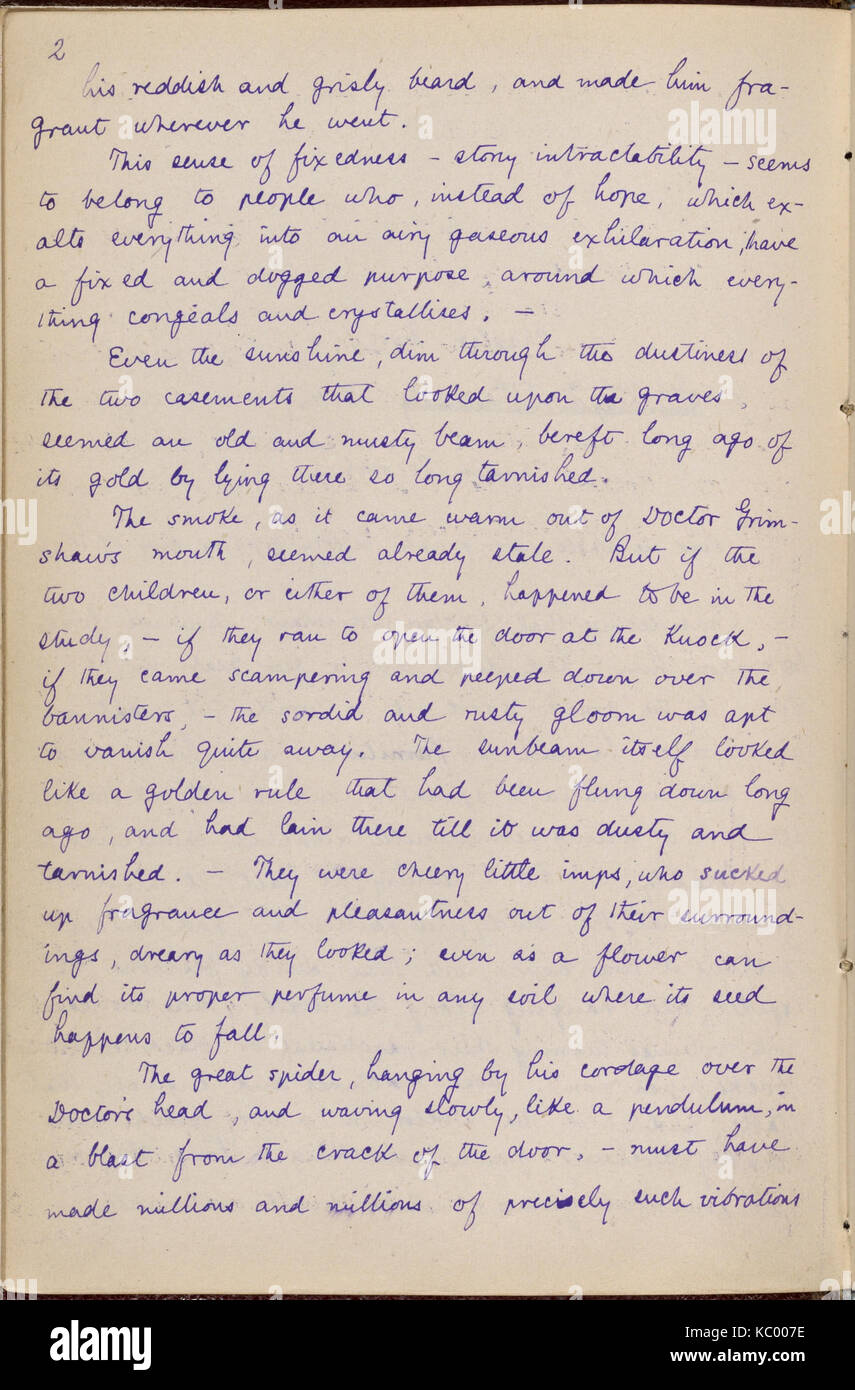 2
his reddish and grisly beard, and made him fra-
grant wherever he went.
This sense of fixedness – stony intractability – seems
to belong to people who, instead of hope, which ex-
alts everything into an airy gaseous exhilaration, have
a fixed and dogged purpose, around which every-
thing congeals and crystallises. –
Even the sunshine, dim through the dustiness of
the two casements that looked upon the graves,
seemed an old and musty beam, bereft long ago of
its gold by lying there so long tarnished.
The smoke, as it came warm out of Doctor Grim-
shaw's mouth, seemed already stale. But if the
two children, or either of them, happened to be in the
study, – if they ran to open the door at the knock, –
if they came scampering and peeped down over the
bannisters, – the sordid and rusty gloom was apt
to vanish quite away. The sunbeam itself looked
like a golden rule that had been flung down long
ago, and had lain there till it was dusty and
tarnished. – They were cheery little imps, who sucked
up fragrance and pleasantness out of their surround-
ings, dreary as they looked; even as a flower can
find its proper perfume in any soil where its seed
happens to fall.
The great spider, hanging by his cordage over the
Doctor's head, and waving slowly, like a pendulum, in
a blast from the crack of the door, – must have
made millions and millions of precisely such vibrations
alamy
Image ID: KC007E
www.alamy.com